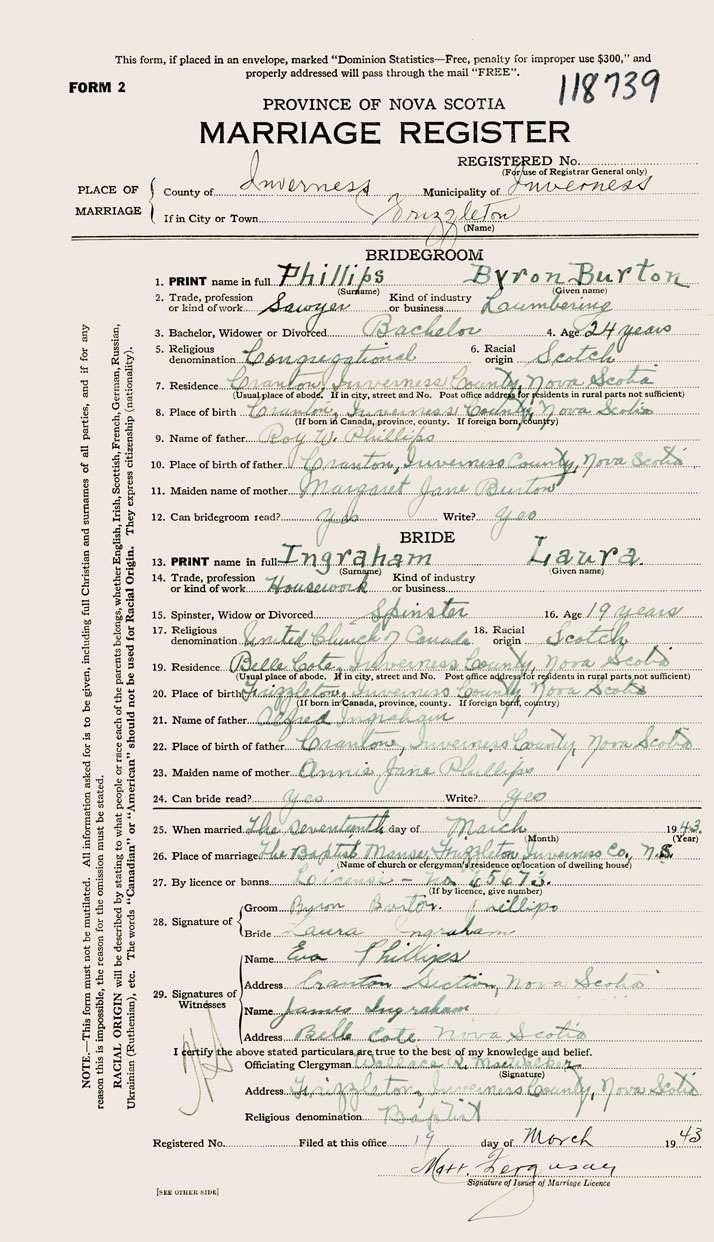 This form, if placed in an envelope, marked “Dominion Statistics—Free, penalty for improper use $300,” and
properly addressed will pass through the mail “FREE”.
FORM 2
118739
PROVINCE OF NOVA SCOTIA
MARRIAGE REGISTER
REGISTERED No.
(For use of Registrar General only)
PLACE OF MARRIAGE
County of Inverness Municipality of Inverness
If in City or Town Frizzleton
(Name)
BRIDEGROOM
1. PRINT name in full Phillips Byron Burton
(Surname) (Given name)
2. Trade, profession or kind of work Sawyer Kind of industry or business Laumbering
3. Bachelor, Widower or Divorced Bachelor 4. Age 24 years
5. Religious denomination Congregational 6. Racial origin Scotch
7. Residence Cranton, Inverness County, Nova Scotia
(Usual place of abode. If in city, street and No. Post office address for residents in rural parts not sufficient)
8. Place of birth Cranton, Inverness County, Nova Scotia
(If born in Canada, province, county. If foreign born, country)
9. Name of father Roy W. Phillips
10. Place of birth of father Cranton, Inverness County, Nova Scotia
11. Maiden name of mother Margaret Jane Burton
12. Can bridegroom read? yes Write? yes
BRIDE
13. PRINT name in full Ingraham Laura.
(Surname) (Given name)
14. Trade, profession or kind of work Housework Kind of industry or business
15. Spinster, Widow or Divorced Spinster 16. Age 19 years
17. Religious denomination United Church of Canada 18. Racial origin Scotch
19. Residence Belle Cote, Inverness County, Nova Scotia
(Usual place of abode. If in city, street and No. Post office address for residents in rural parts not sufficient)
20. Place of birth Frizzleton, Inverness County Nova Scotia
(If born in Canada, province, county. If foreign born, country)
21. Name of father Alfred Ingraham
22. Place of birth of father Cranton, Inverness County, Nova Scotia
23. Maiden name of mother Annie Jane Phillips
24. Can bride read? yes Write? yes
25. When married The seventeenth day of March 1943.
(Month) (Year)
26. Place of marriage The Baptist Manse, Frizzleton Inverness Co., N.S.
(Name of church or clergyman's residence or location of dwelling house)
27. By licence or banns License - No. 45673.
(If by licence, give number)
28. Signature of
Groom Byron Burton. Phillips
Bride Laura Ingraham
29. Signatures of Witnesses
Name Eva Phillips
Address Cranton Section, Nova Scotia
Name James Ingraham
Address Belle Cote Nova Scotia
I certify the above stated particulars are true to the best of my knowledge and belief.
Officiating Clergyman Wallace
(Signature)
Address Frizzleton, Inverness County, Nova Scotia
Religious denomination Baptist
Registered No. Filed at this office 19 day of March 1943
Matt. Ferguson
Signature of Issuer of Marriage Licence
[SEE OTHER SIDE]
NOTE.—This form must not be mutilated. All information asked for is to be given, including full Christian and surnames of all parties, and if for any
reason this is impossible, the reason for the omission must be stated.
RACIAL ORIGIN will be described by stating to what people or race each of the parents belongs, whether English, Irish, Scottish, French, German, Russian,
Ukrainian (Ruthenian), etc. The words “Canadian” or “American” should not be used for Racial Origin. They express citizenship (nationality).